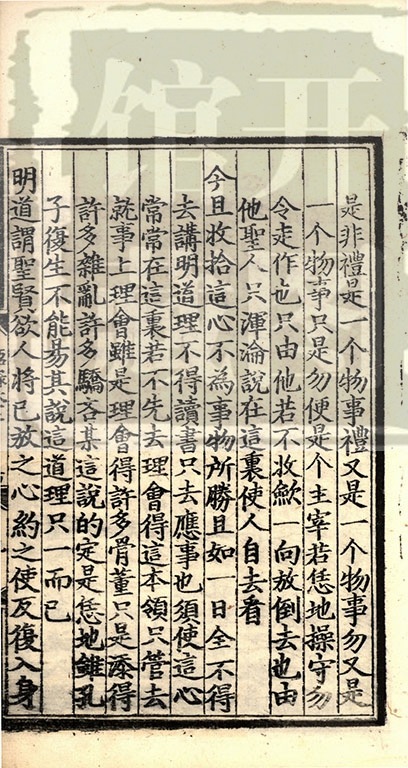 是非禮是一个物事禮又是一个物事勿又是
一个物事只是勿便是个主宰若恁地操守勿
令走作也只由他若不收歛一向放倒去也由
他聖人只渾淪說在這裏使人自去看
今且收拾這心不為事物所勝且如一日全不得
去講明道理不得讀書只去應事也須使這心
常常在這裏若不先去理會得這本領只管去
就事上理會雖是理會得許多骨董只是添得
許多雜亂許多驕吝某這說的定是恁地雖孔
子復生不能易其說這道理只一而已
明道謂聖賢欲人將已放之心約之使反復入身